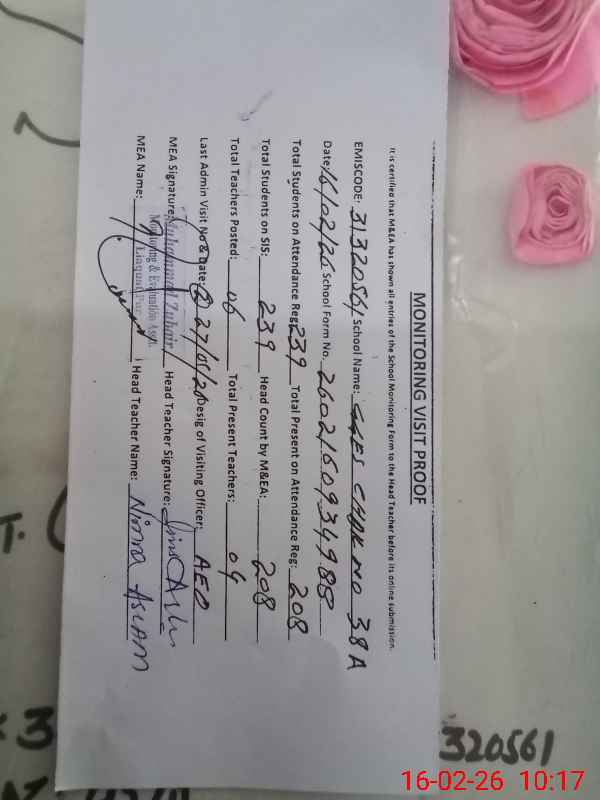 MONITORING VISIT PROOF
It is certified that M&EA has shown all entries of the School Monitoring Form to the Head Teacher before its online submission.
EMISCODE: 31320561 School Name: GGES CHAK NO 38A
Date: 16/02/26 School Form No. 260216093498
Total Students on Attendance Reg: 239 Total Present on Attendance Reg: 208
Total Students on SIS: 239 Head Count by M&EA: 208
Total Teachers Posted: 06 Total Present Teachers: 04
Last Admin Visit No & Date: Desig of Visiting Officer: AEO
MEA Signature: Head Teacher Signature:
Muhammad Zubair
Monitoring & Evaluation Asstt.
MEA Name: Head Teacher Name: Nimra ASLAM
320561
16-02-26 10:17